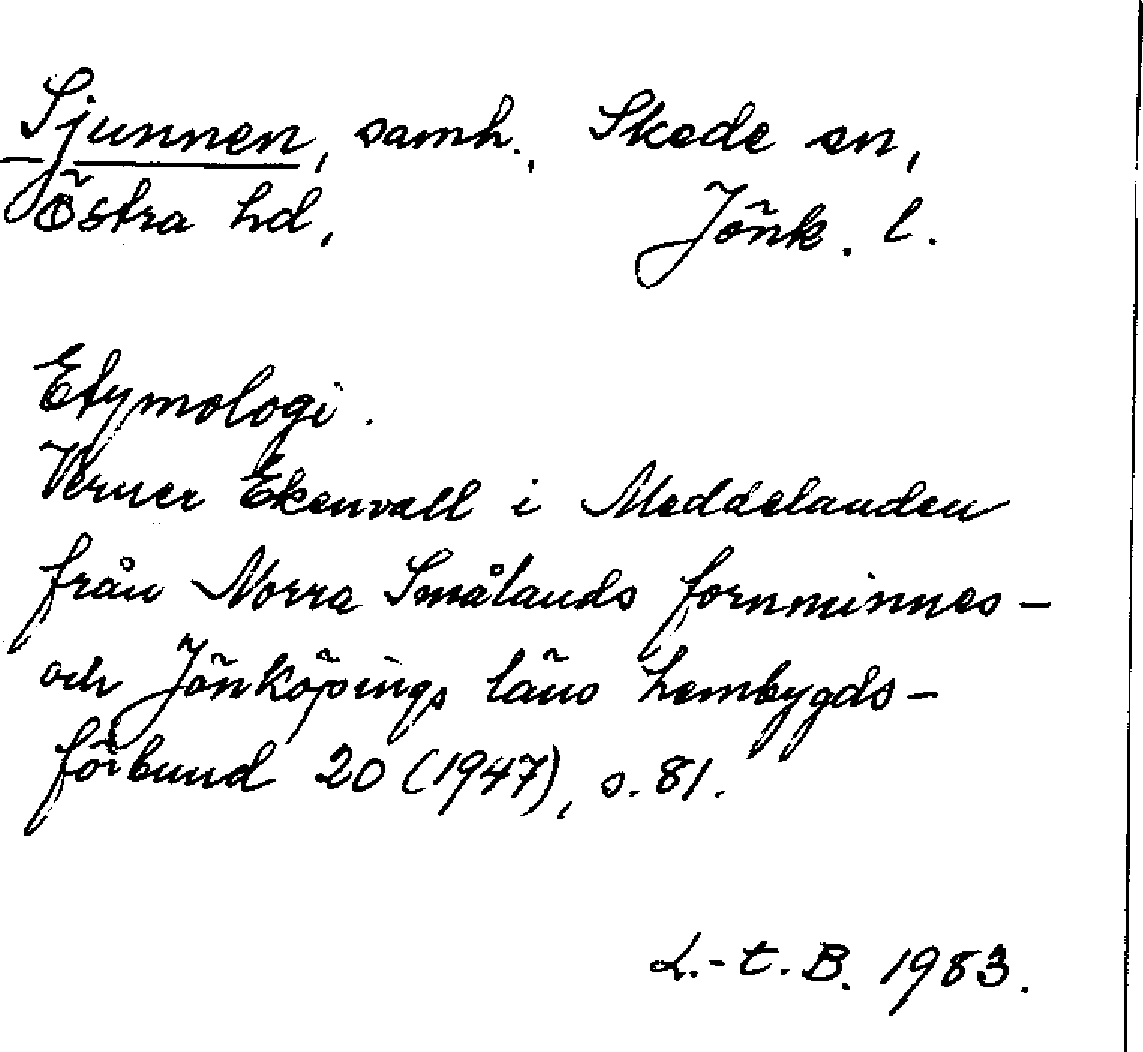 Sjunnen, samh., Skede sn,
Östra hd, Jönk. l.
Etymologi.
Verner Ekenvall i Meddelanden
från Norra Smålands fornminnes-
och Jönköpings läns hembygds-
förbund 20 (1947), s. 81.
L.-t. B. 1983.